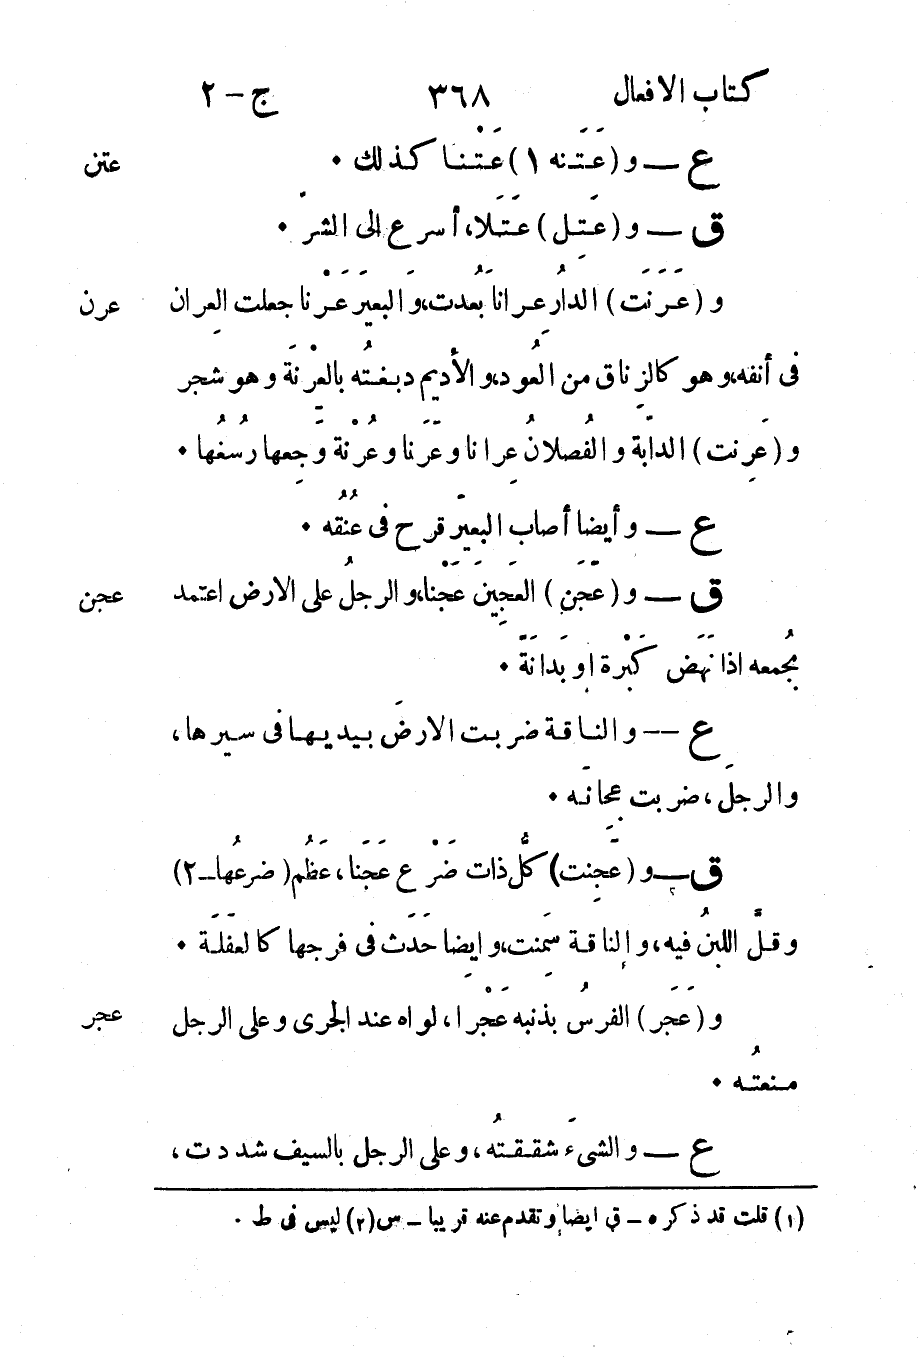 كتاب الافعال ٣٦٨ ج – ٢
ع — و (عَتَنه ١) عَتْنا كذلك • عتن
ق — و (عَتِل) عَتَلا، أسرع الى الشرّ •
و (عَرَنَت) الدارُ عِرانا بَعُدت، وَالبعيرَ عَرْنا جعلت العِران عرن
فى أنفه، وهو كالزِناق من العُود، والأديمَ دبغتُه بالعِرْنَة وهو شجر
و (عَرِنت) الدابّة والفُصلانُ عِرانا وعَرَنا وعُرْنةً وجِعها رُسُغُها •
ع — وأيضا أصاب البعيرَ قرح فى عنُقُه •
ق — و (عَجَن) العَجِينَ عَجْنا، والرجلُ على الارض اعتمد عجن
بجُمعه اذا نَهَض كَبْرة او بَدانَةً •
ع –– والناقة ضربت الارضَ بيديها فى سيرها،
والرجلَ، ضربت عِجانَه •
ق — و (عَجِنت) كلُّ ذات ضَرْع عَجَنا، عَظُم (ضرعُها – ٢)
وقلَّ اللبنُ فيه، والناقة سَمِنت، وايضا حَدَث فى فرجها كالعَفَلَة •
و (عَجَر) الفرسُ بذنبِه عَجْرا، لواه عند الجرى وعلى الرجل عجر
منعتُه •
ع — والشىءَ شققتُه، وعلى الرجل بالسيف شددت،
(١) قلت قد ذكره – ق ايضا وتقدم عنه قريبا – س (٢) ليس فى ط •